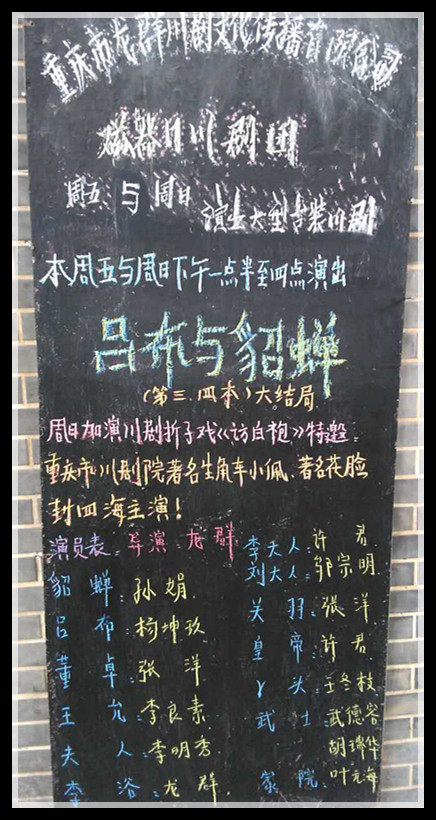 重庆市龙群川剧文化传播有限公司
磁器口川剧团
周五与周日
演出大型古装川剧
本周五与周日下午一点半至四点演出
吕布与貂蝉
(第三.四本)大结局
周日加演川剧折子戏《访白袍》特邀:
重庆市川剧院著名生角车小佩、著名花脸
封四海主演!
演员表: 导演: 龙群
貂蝉:孙娟
吕布:杨坤玖
董卓:张洋
王允:李良素
夫人:李明秀
李洛:龙群
李大人:许君
刘大人:邹宗明
关羽:张洋
皇帝:许君
丫头:王冬枝
武士:武德容
胡瑞华
家院:叶元海